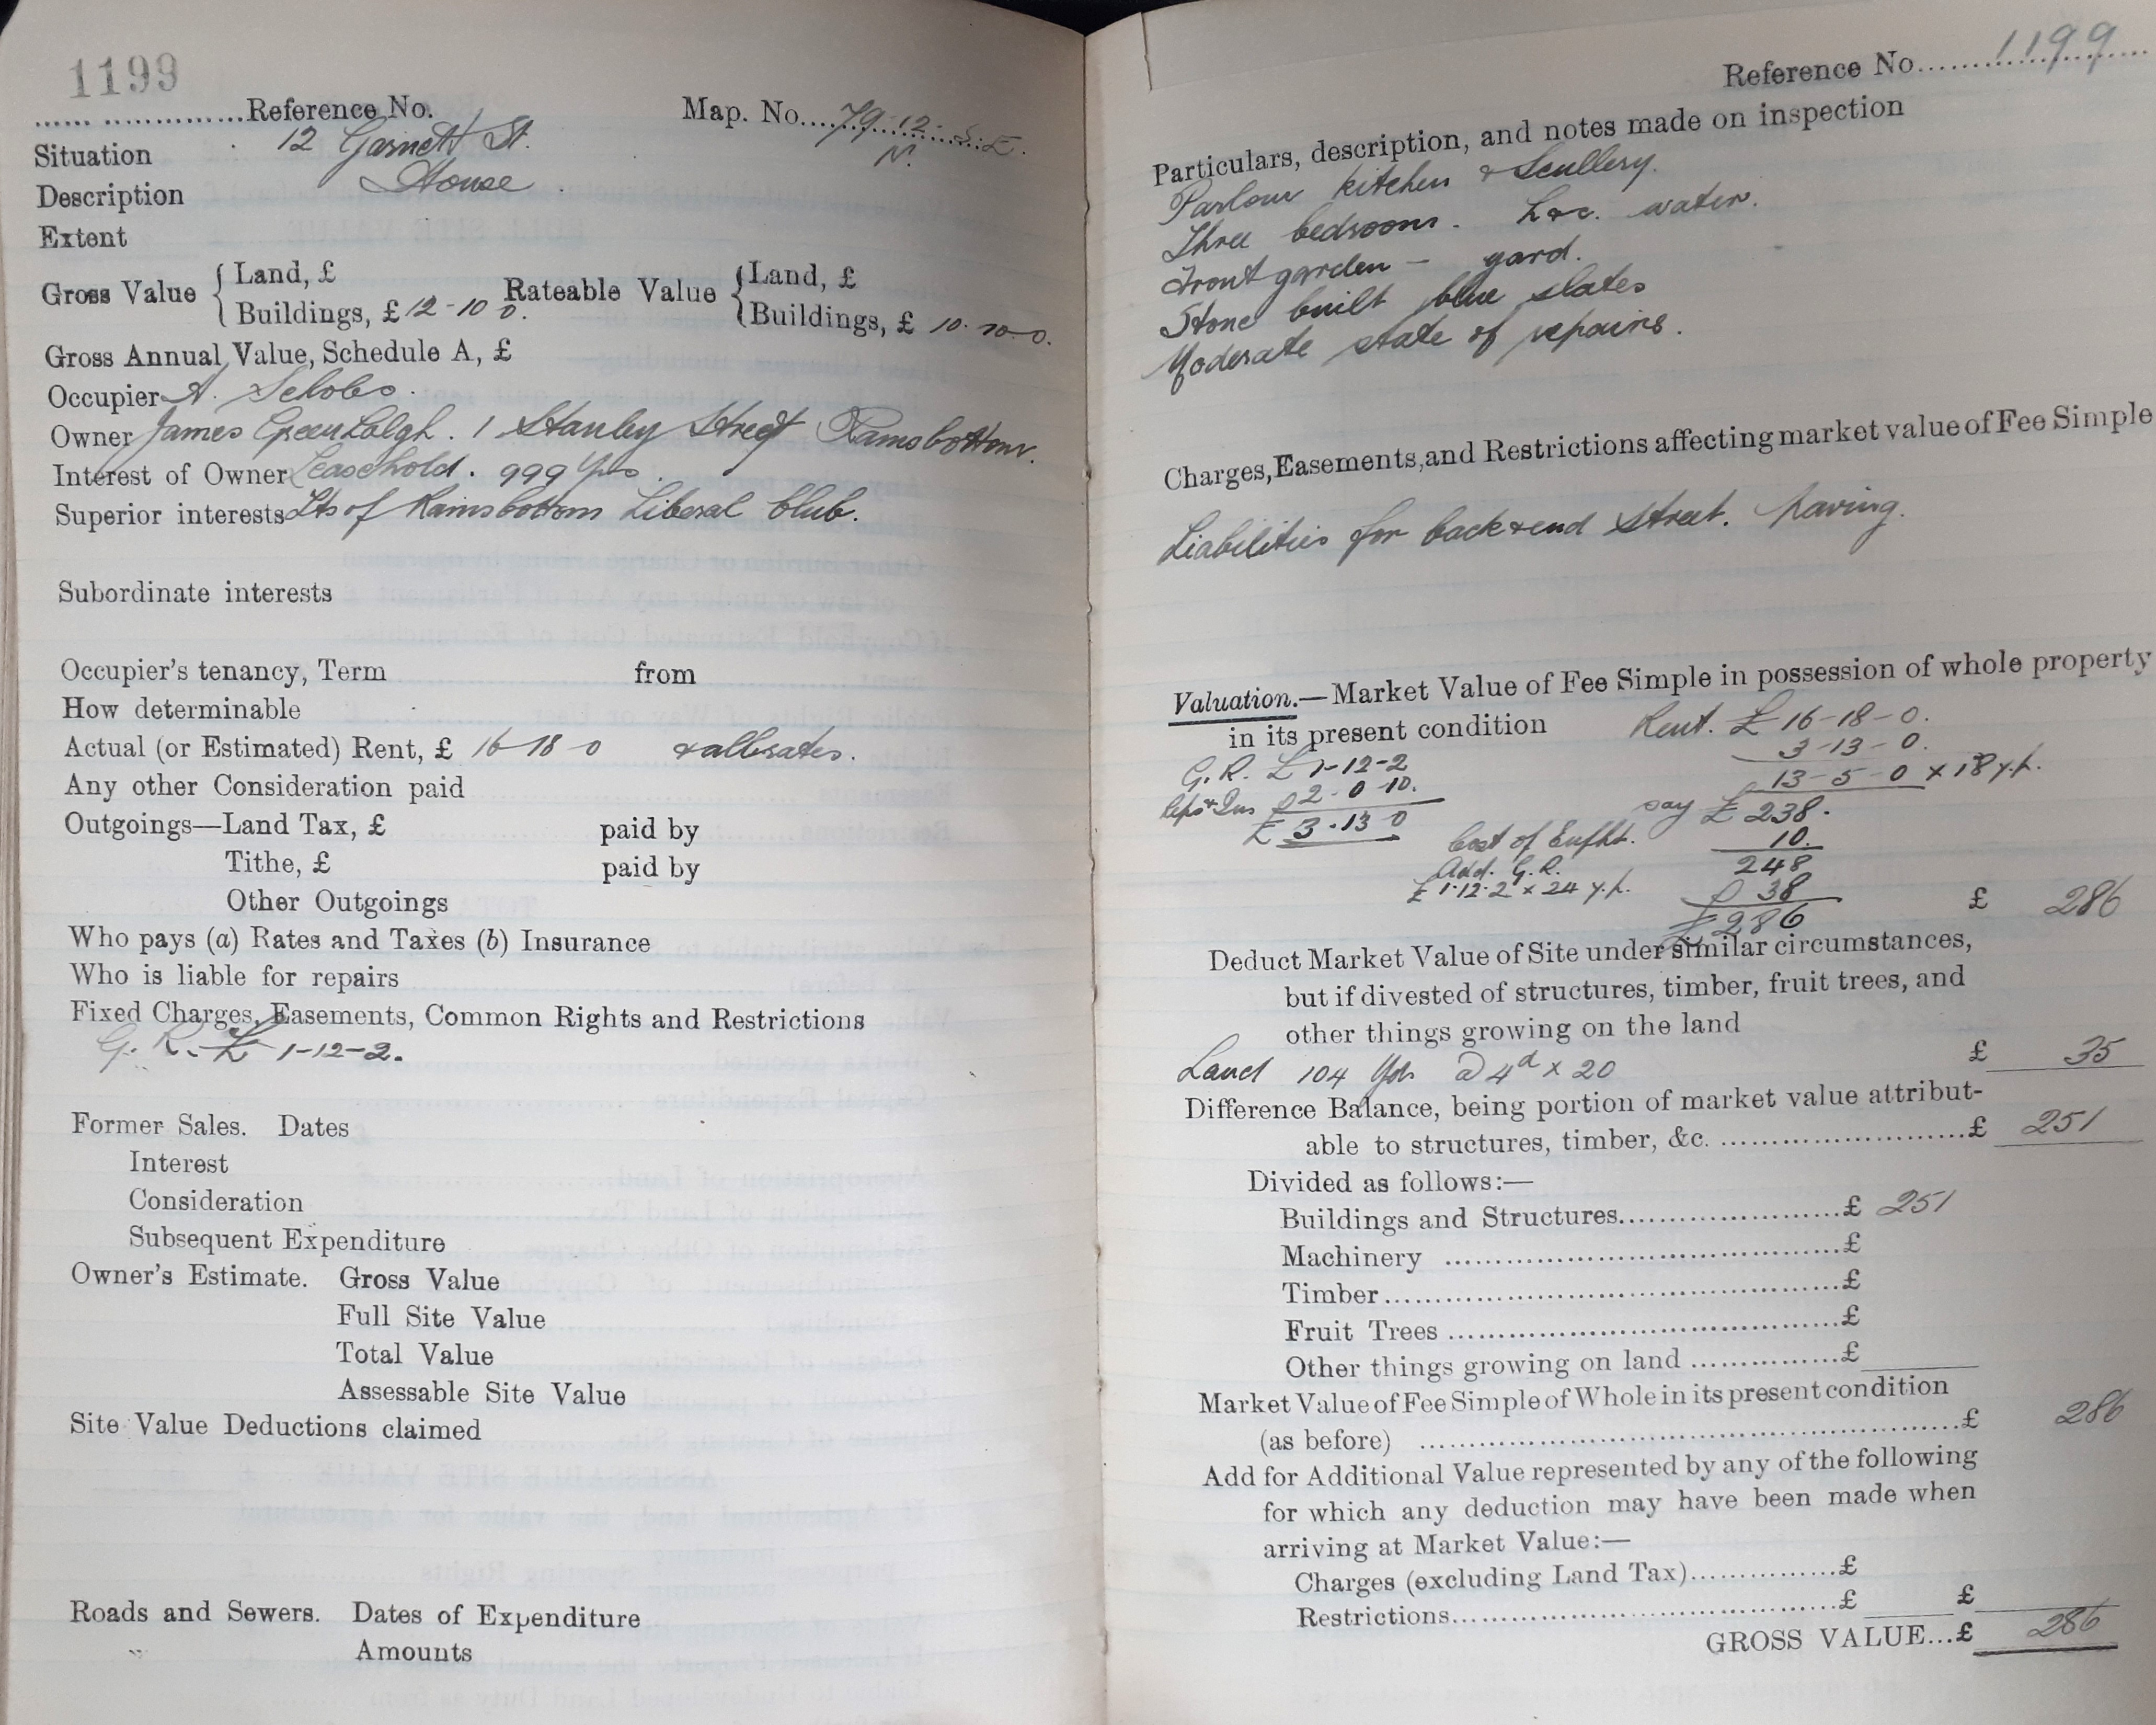 1199
...... ..............Reference No. Map. No....79.12.S.E.
N.
Situation 12 Garnett St.
Description House
Extent
Gross Value { Land, £ Rateable Value { Land, £
Buildings, £ 12-10 0. Buildings, £ 10.10-0.
Gross Annual Value, Schedule A, £
Occupier A.
Owner James Greenhalgh. 1 Stanley Street Ramsbottom.
Interest of Owner Leasehold. 999 Yrs.
Superior interests Lts of Ramsbottom Liberal Club.
Subordinate interests
Occupier's tenancy, Term from
How determinable
Actual (or Estimated) Rent, £ 16-18-0 & all rates.
Any other Consideration paid
Outgoings—Land Tax, £ paid by
Tithe, £ paid by
Other Outgoings
Who pays (a) Rates and Taxes (b) Insurance
Who is liable for repairs
Fixed Charges, Easements, Common Rights and Restrictions
G. R. £ 1-12-2.
Former Sales. Dates
Interest
Consideration
Subsequent Expenditure
Owner's Estimate. Gross Value
Full Site Value
Total Value
Assessable Site Value
Site Value Deductions claimed
Roads and Sewers. Dates of Expenditure
Amounts
Reference No......1199...
Particulars, description, and notes made on inspection
Parlour kitchen & Scullery.
Three bedrooms. h&c. water.
Front garden - yard.
Stone built blue slates
Moderate state of repairs.
Charges, Easements, and Restrictions affecting market value of Fee Simple
Liabilities for back & end Street. Paving.
Valuation.—Market Value of Fee Simple in possession of whole property
in its present condition Rent. £ 16-18-0.
G. R. £ 1-12-2 3-13-0.
Reps & Ins £ 2-0-10. 13-5-0 x 18 y.p.
£ 3.13 0 say £ 238.
Cost of Enfht. 10.
Add. G. R. 248
£ 1.12.2 x 24 y.p. 38
£ 286 £ 286
Deduct Market Value of Site under similar circumstances,
but if divested of structures, timber, fruit trees, and
other things growing on the land
Land 104 Yds @ 4d x 20 £ 35
Difference Balance, being portion of market value attribut-
able to structures, timber, &c. ..........................£ 251
Divided as follows:—
Buildings and Structures.......................£ 251
Machinery .......................................£
Timber.............................................£
Fruit Trees .......................................£
Other things growing on land ...............£
Market Value of Fee Simple of Whole in its present condition
(as before) .......................................................£ 286
Add for Additional Value represented by any of the following
for which any deduction may have been made when
arriving at Market Value:—
Charges (excluding Land Tax)...............£
Restrictions.......................................£ £
GROSS VALUE...£ 286